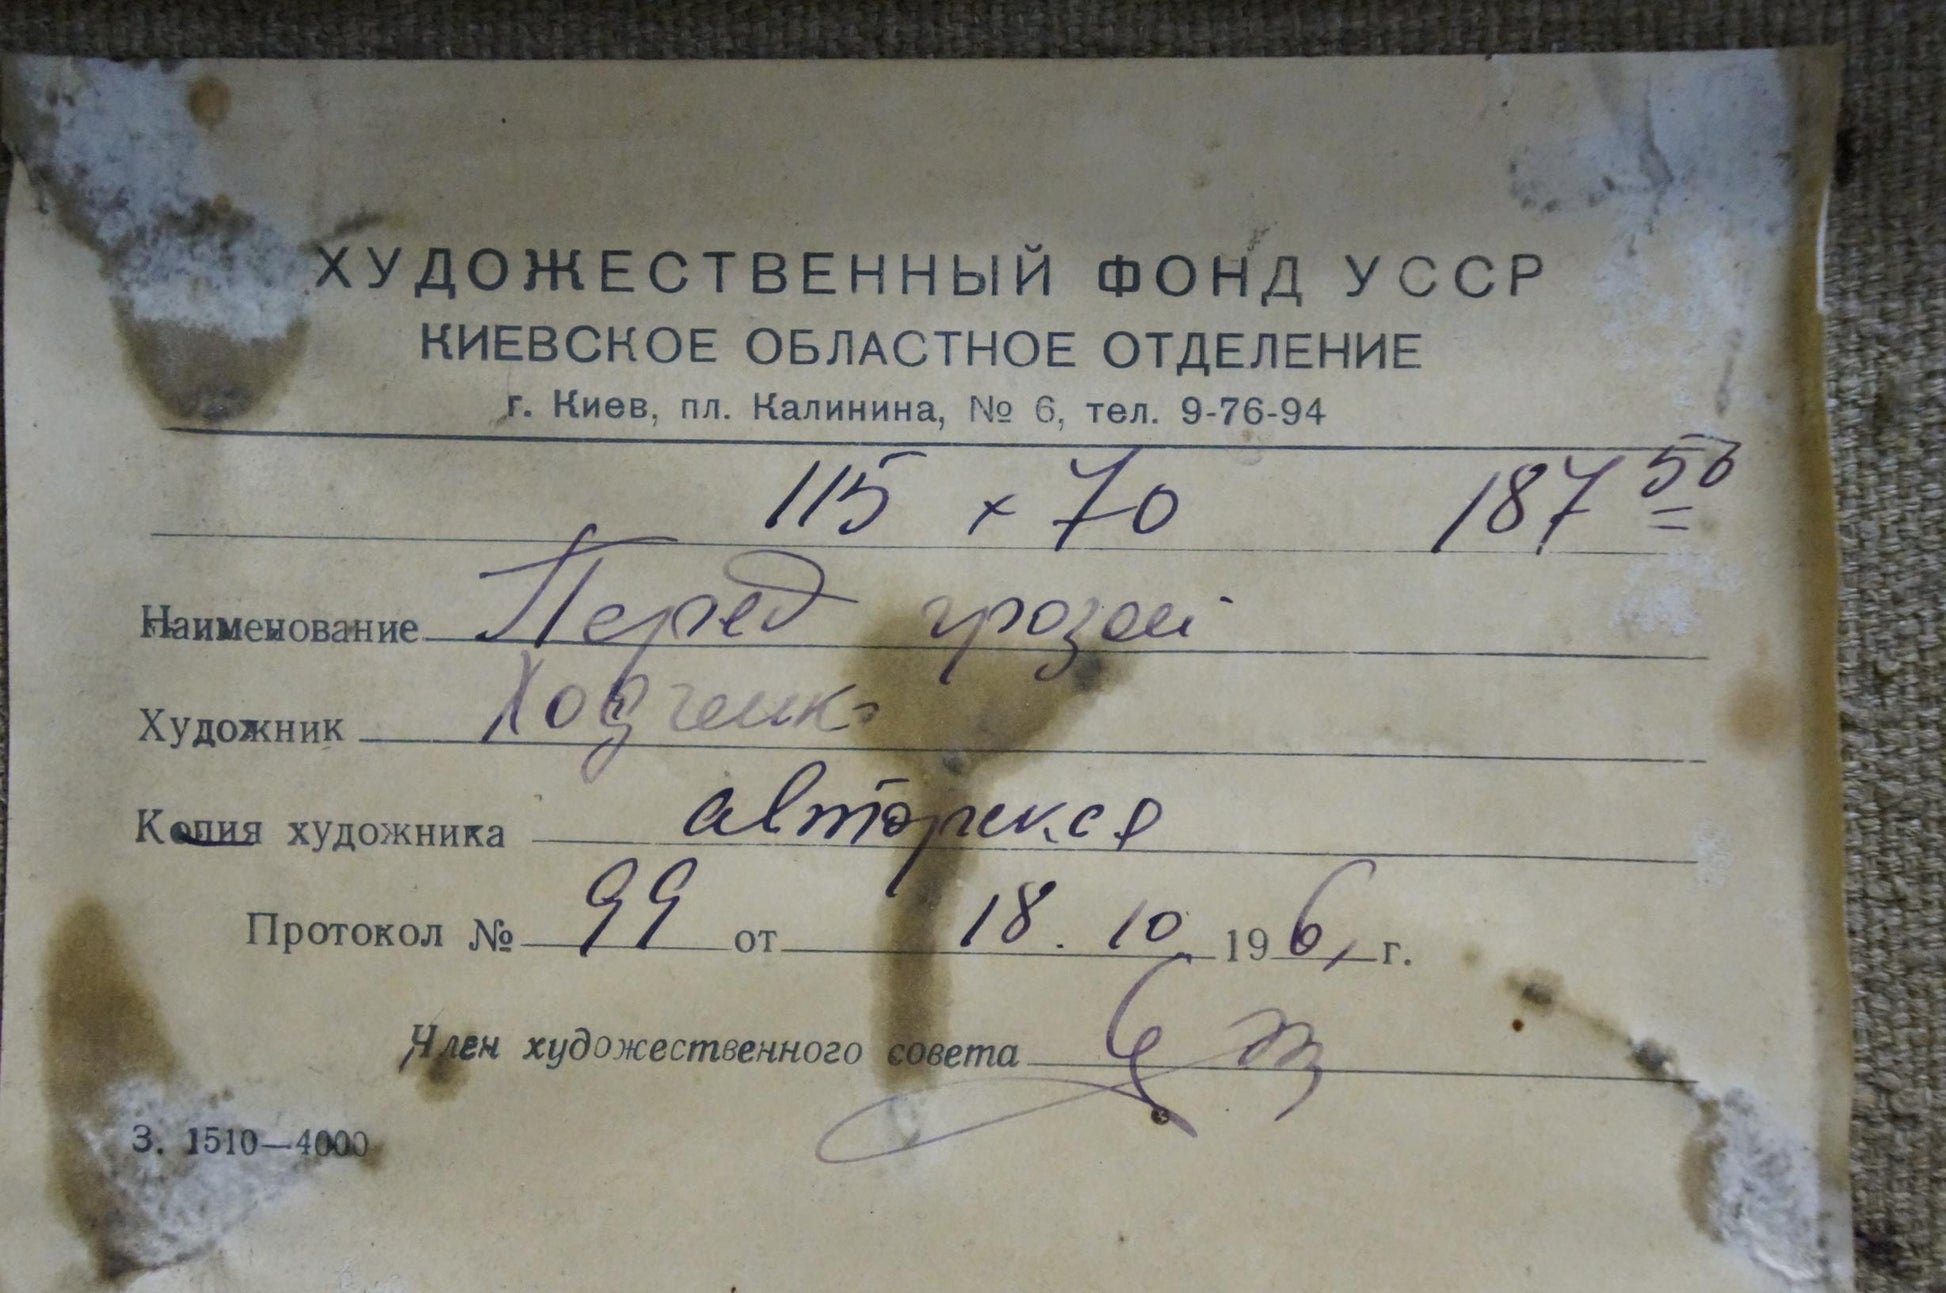 ХУДОЖЕСТВЕННЫЙ ФОНД УССР
КИЕВСКОЕ ОБЛАСТНОЕ ОТДЕЛЕНИЕ
г. Киев, пл. Калинина, № 6, тел. 9-76-94
115 x 70 187 50
Наименование Перед грозой
Художник Ходченко
Копия художника авторская
Протокол № 99 от 18. 10 1961 г.
Член художественного совета
З. 1510—4000